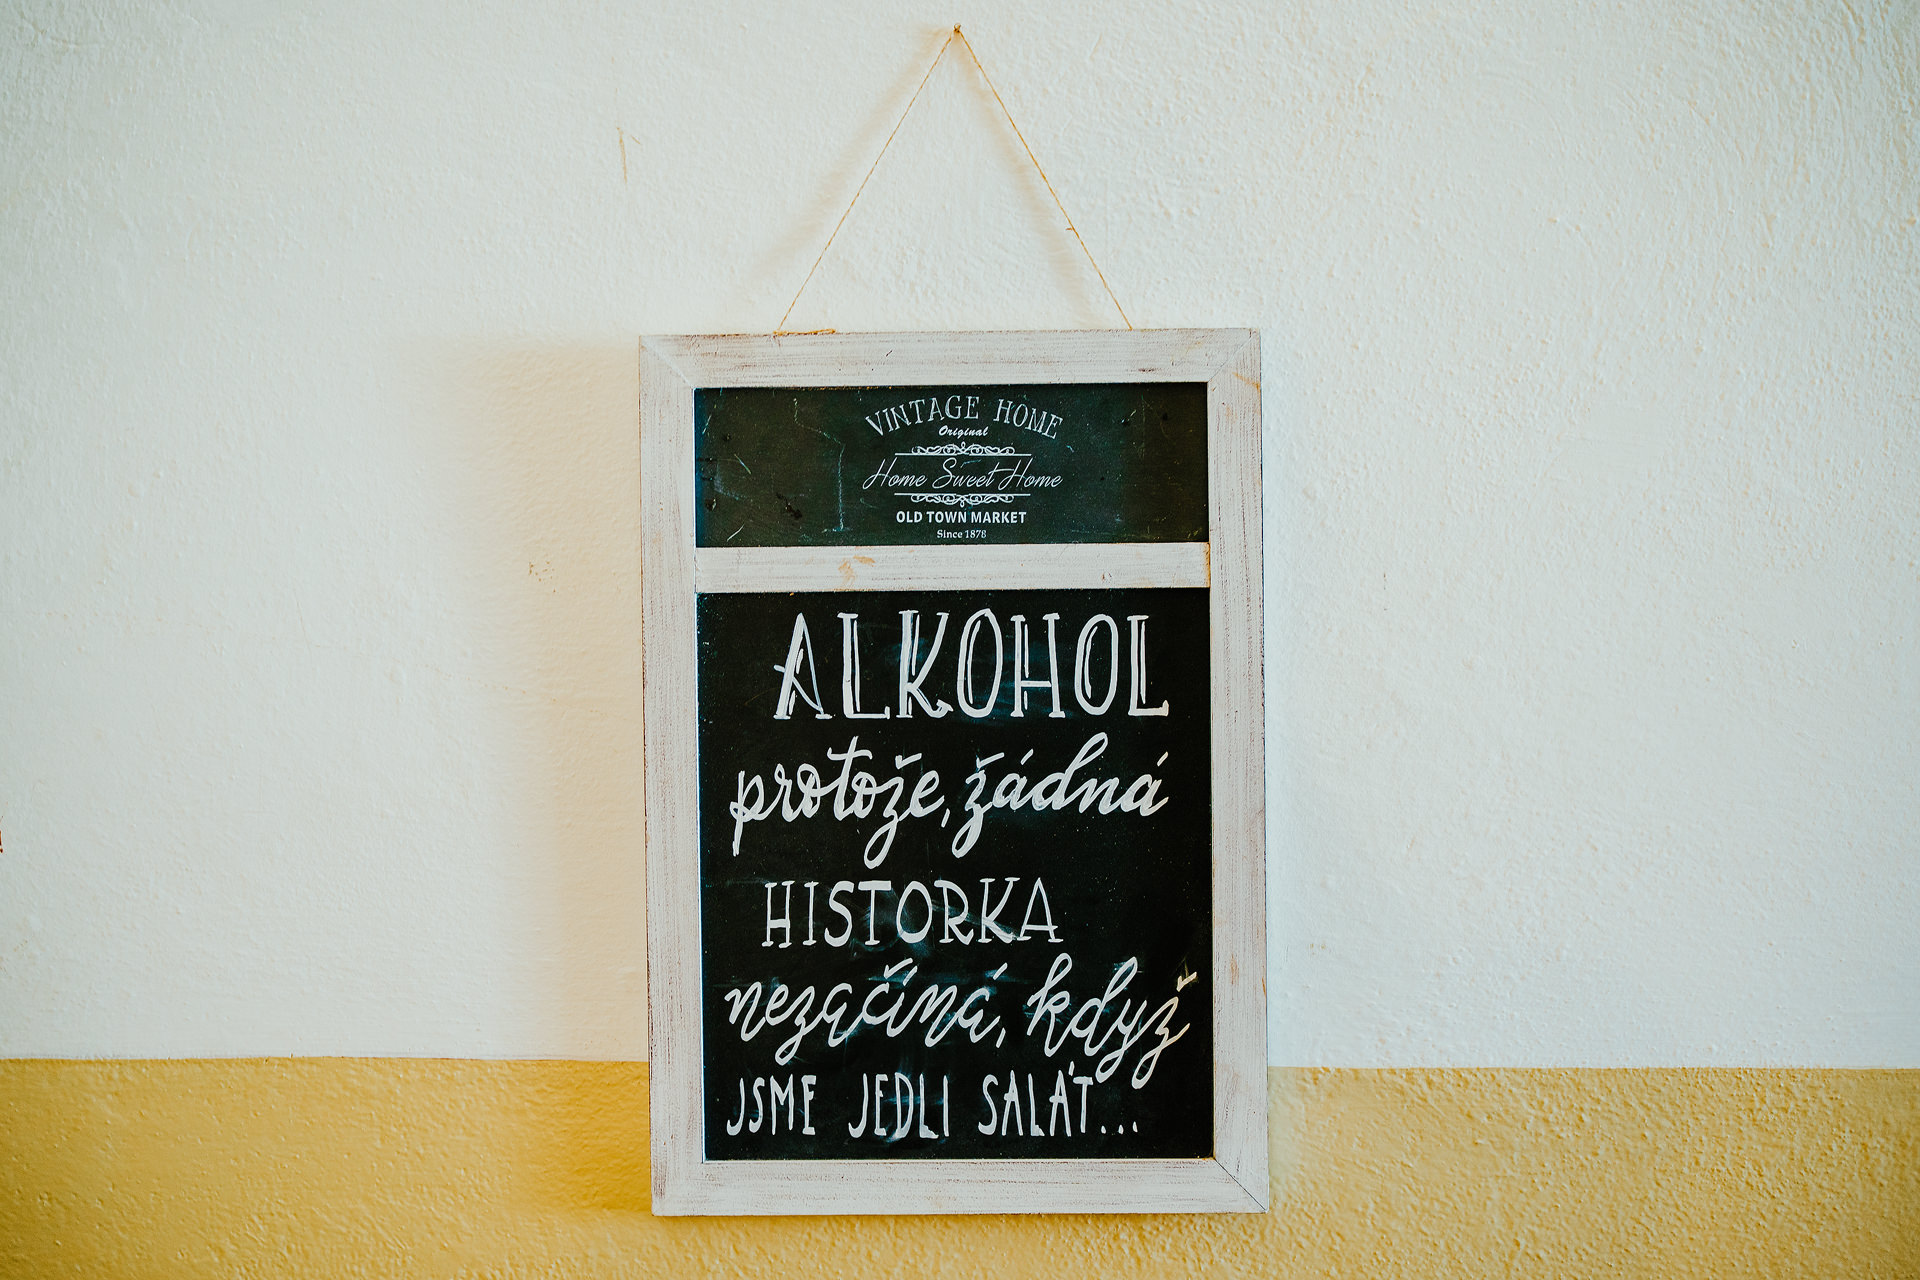 VINTAGE HOME
Original
Home Sweet Home
OLD TOWN MARKET
Since 1878
ALKOHOL
protože, žádná
HISTORKA
nezačíná, když
JSME JEDLI SALÁT...